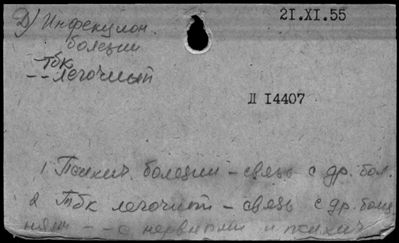 21.XI.55
Д) Инфекцион.
болезни
Тбк
-- легочный
Л 14407
1 Психич. болезни - связь с др. бол.
2 Тбк легочный - связь с др. болез
ням - - с нервными и психич